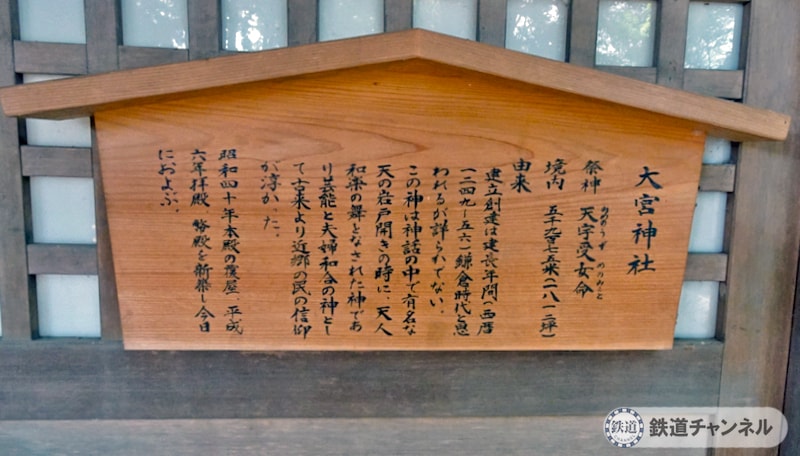 大宮神社
祭神 天宇受女命
あめのうずめのみこと
境内 五千六百七五米(二八一三坪)
由来
建立創造は建長年間、西暦
(一二四九~五六)鎌倉時代と思
われるが詳らかでない。
この神は神話の中で有名な
天の岩戸開きの時に、天人
和楽の舞となされた神であ
り芸能と夫婦和合の神とし
て古来より近郷の民の信仰
が淳かった。
昭和四十年本殿の覆屋、平成
六年拝殿 弊殿を新築し今日
におよぶ。
鉄道
CHANNEL
鉄道チャンネル